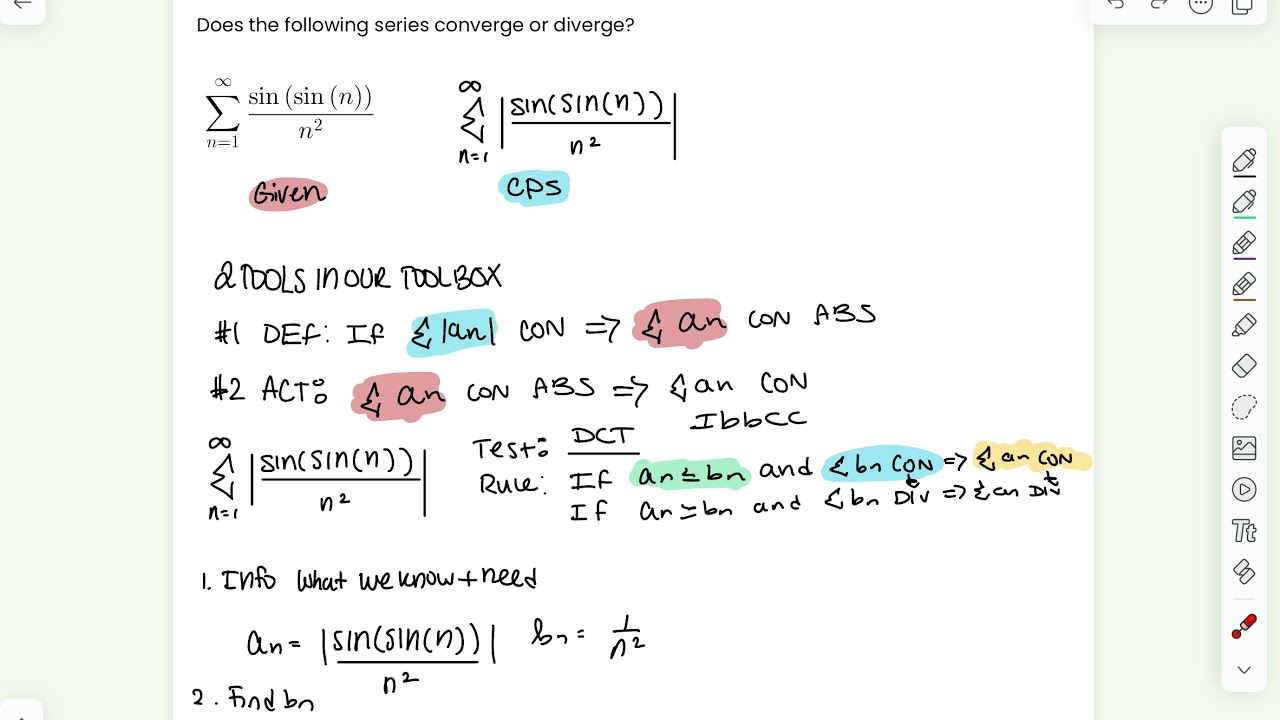 Does the following series converge or diverge?
∞
∑ sin (sin (n)) / n²
n=1
∞
∑ |sin(sin(n)) / n²|
n=1
Given
CPS
2 TOOLS IN OUR TOOLBOX
#1 DEF: If ∑|an| CON => ∑ an CON ABS
#2 ACT: ∑ an CON ABS => ∑ an CON
IbbCC
∞
∑ |sin(sin(n)) / n²|
n=1
Test: DCT
Rule: If an ≤ bn and ∑ bn CON => ∑ an CON
If an ≥ bn and ∑ bn DIV => ∑ an DIV
1. Info what we know + need
an = |sin(sin(n)) / n²| bn = 1/n²
2. Find bn
Tt